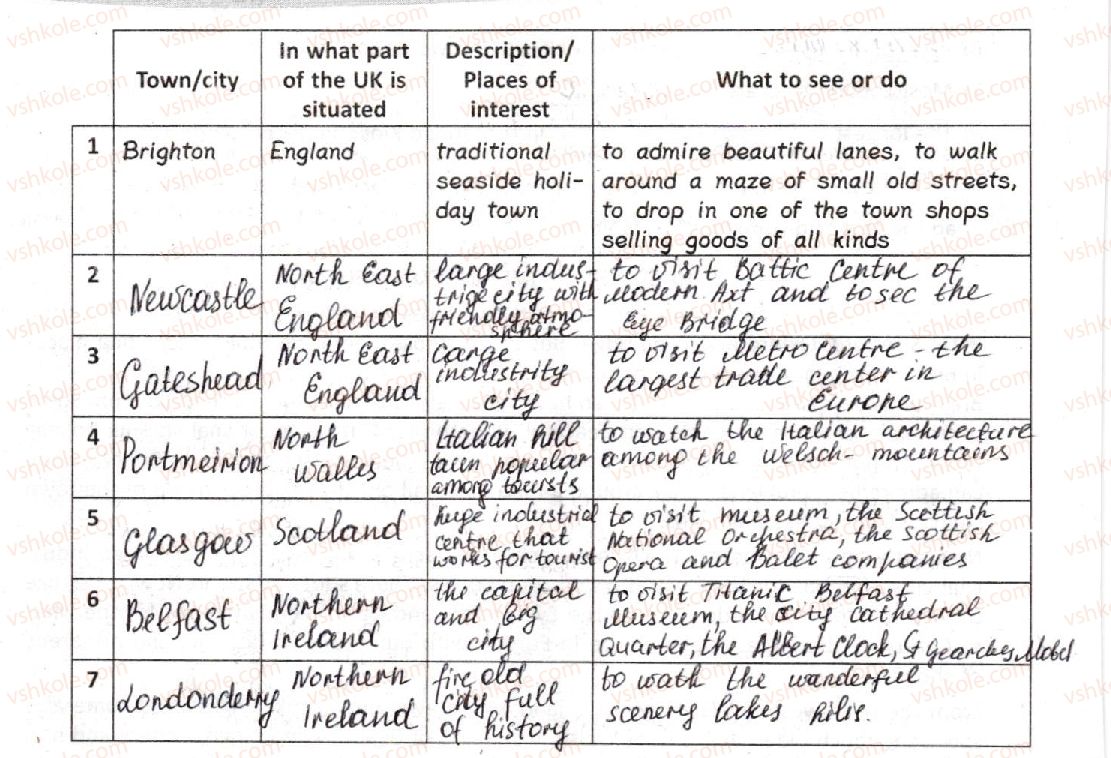 Town/city
In what part
of the UK is
situated
Description/
Places of
interest
What to see or do
1
Brighton
England
traditional
seaside holi-
day town
to admire beautiful lanes, to walk
around a maze of small old streets,
to drop in one of the town shops
selling goods of all kinds
2
Newcastle
North East
England
large indus-
city with
friendly atmo-
sphere
to visit Baltic Centre of
Modern Art and to see the
Eye Bridge
3
Gateshead
North East
England
Large
industrity
city
to visit Metro Centre - the
largest trade center in
Europe
4
Portmeirion
North
Walles
Italian hill
town popular
among tourists
to watch the Italian architecture
among the Welsch- mountains
5
Glasgow
Scotland
huge industrial
centre that
works for tourist
to visit museum, the Scottish
National Orchestra, the Scottish
Opera and Balet companies
6
Belfast
Northern
Ireland
the capital
and big
city
to visit Titanic Belfast
Museum, the city Cathedral
Quarter, the Albert Clock, St
7
Londonderry
Northern
Ireland
old
city full
of history
to wath the wanderful
scenery lakes hills.
vshkole.com